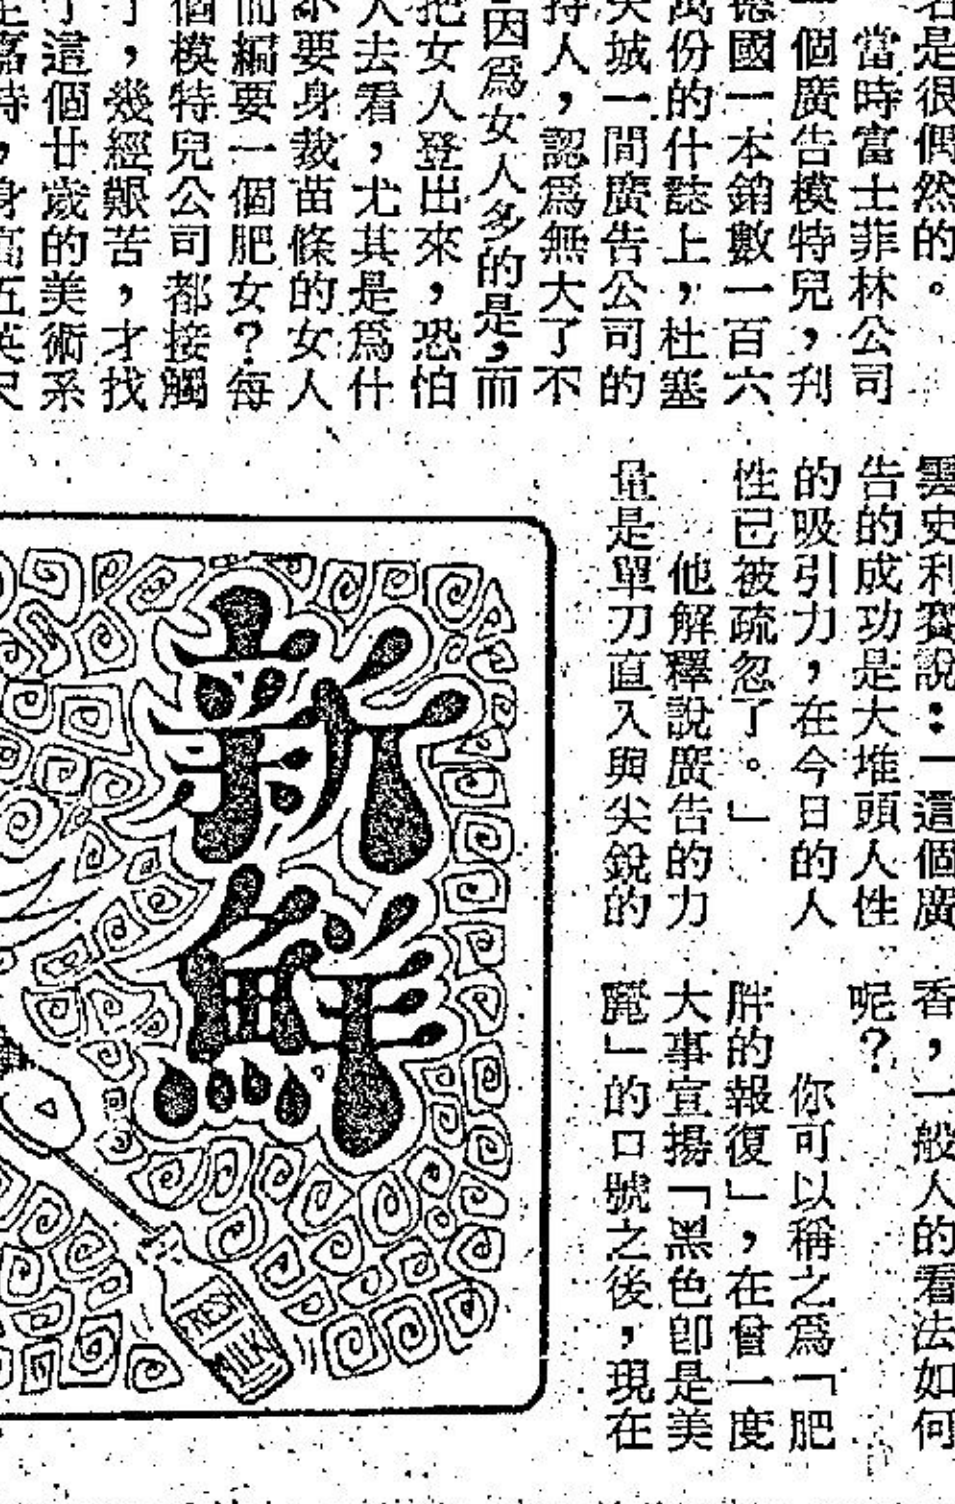 若是很偶然的。
當時富士菲林公司
一個廣告模特兒，刋
德國一本銷數一百六
萬份的什誌上，杜塞
夫城一間廣告公司的
持人，認爲無大了不
因爲女人多的是，而
把女人登出來，恐怕
人去看，尤其是爲什
不要身裁苗條的女人
而編要一個肥女？每
個模特兒公司都接觸
了，幾經艱苦，才找
了這個廿歲的美術系
生嘉特，身高五英尺
雲史利賽說：「這個廣
告的成功是大堆頭人性
的吸引力，在今日的人
性已被疏忽了。」
他解釋說廣告的力
量是單刀直入與尖銳的
香，一般人的看法如何
呢？
你可以稱之爲「肥
胖的報復」，在曾一度
大事宣揚「黑色卽是美
麗」的口號之後，現在
新鮮
MILK